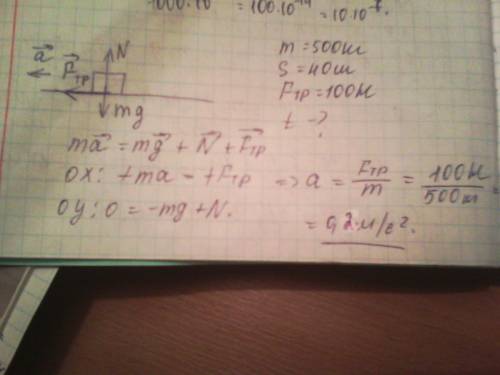 1000·10 = 100·10⁻¹⁴ = 10·10⁻⁸.
a⃗ F⃗тр N
mg
m = 500ш
S = 40ш
Fтр = 100H
t - ?
ma⃗ = mg⃗ + N⃗ + F⃗тр
OX: +ma = +Fтр => a = Fтр/m = 100H/500ш
OY: 0 = -mg + N.
= 0,2 м/с².